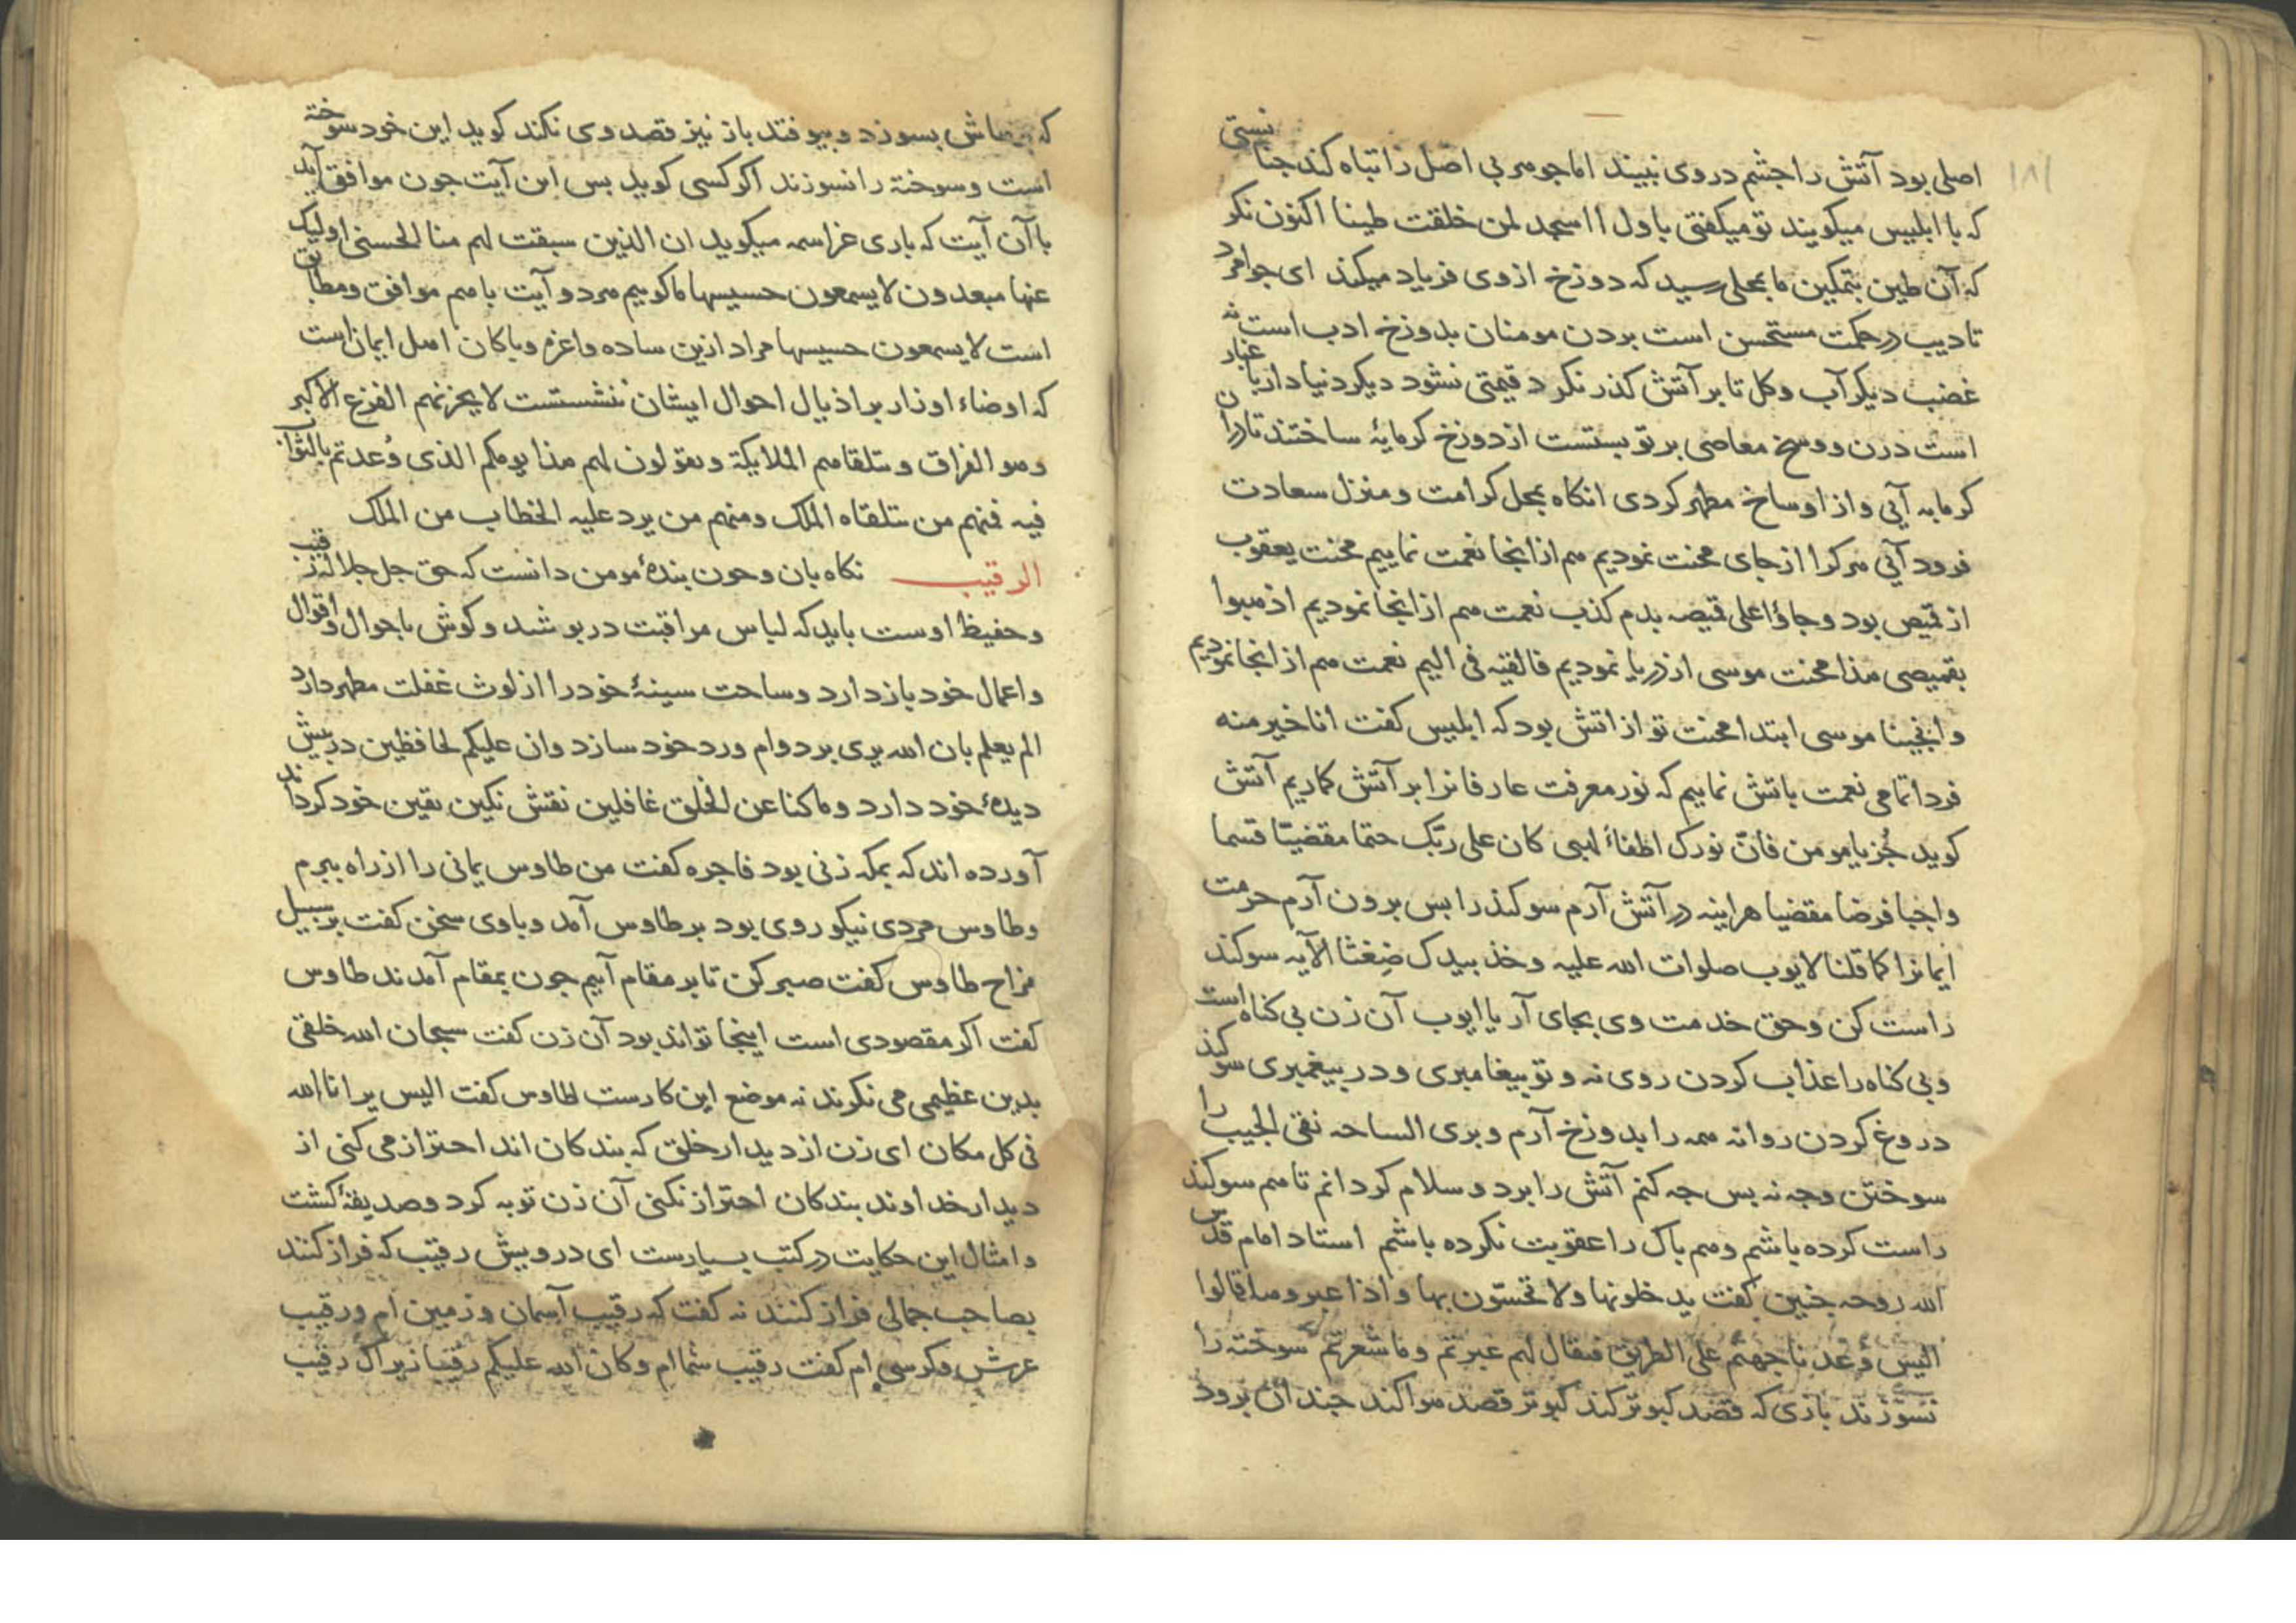 ۱۸۱
اصلی بود آتش را جشم در وی نبیند اما جوهر بی اصل را تباه کند جنانستی
که با ابلیس میکویند تو میکفتی باول ااسجد لمن خلقت طینا اکنون نکر
که آن طین بتمکین ما بمحلی رسید که دوزخ از وی فریاد میکند ای جوامرد
تادیب در حکمت مستحسن است بردن مومنان بدوزخ ادب است نه
غضب دیکر آب و کل تا بر آتش کذر نکرد قیمتی نشود دیکر دنیا دار با غبار
است درن و وسخ معاصی بر تو بستست از دوزخ کرمابۀ ساختند تا در آن
کرمابه آیی و از اوساخ مطهر کردی انکاه بمحل کرامت و منزل سعادت
فرود آیی هر کرا از جای محنت نمودیم هم از انجا نعمت نماییم محنت یعقوب
از قمیص بود و جاؤا علی قمیصه بدم کذب نعمت هم از انجا نمودیم اذهبوا
بقمیصی هذا محنت موسی از دریا نمودیم فالقیه فی الیم نعمت هم از انجا نمودیم
و انجینا موسی ابتدا محنت تو از اتش بود که ابلیس کفت انا خیر منه
فردا تمامی نعمت باتش نماییم که نور معرفت عارفانرا بر آتش کماریم آتش
کوید جُز یا مومن فانّ نورک اطفاٴ لهبی کان علی ربّک حتما مقضیّا قسما
واجبا فرضا مقضیا هراینه در آتش آرم سوکند را بس برون آرم حرمت
ایمانرا کما قلنا لایوب صلوات الله علیه و خذ بیدک ضِغثا الآیه سوکند
راست کن و حق خدمت وی بجای آر یا ایوب آن زن بی کناه است
و بی کناه را عذاب کردن روی نه و تو بیغامبری و در بیغمبری سوکند
دروغ کردن روا نه همه را بدوزخ آرم و بری الساحه نقی الجیب را
سوختن وجه نه بس جه کنم آتش را برد و سلام کردانم تا هم سوکند
راست کرده باشم و هم باک را عقوبت نکرده باشم استاد امام قدس
الله روحه جنین کفت یدخلونها ولا تحسّون بها و اذا عبروها قالوا
الیس وُعدنا جهنّم علی الطریق فیقال لهم عبرتم و ما شعرتم سوخته را
نسوزند بازی که قصد کبوتر کند کبوتر قصد هوا کند جندان برود
بسوزد و بیوفتد باز نیز قصد وی نکند کوید این خود سوخته
است و سوخته را نسوزند اکر کسی کوید بس این آیت جون موافق آید
با آن آیت که باری عز اسمه میکوید ان الذین سبقت لهم منا الحسنی اولیک
عنها مبعدون لا یسمعون حسیسها ما کوییم هر دو آیت با هم موافق و مطابق
است لا یسمعون حسیسها مراد ازین ساده و اغزه و باکان اهل ایمان است
که اوضاء اوزار بر اذیال احوال ایشان ننشستست لا یحزنهم الفزع الاکبر
و هو الفراق و تتلقاهم الملایکة و یقولون لهم هذا یومکم الذی وُعدتم بالثواب
فیه فمنهم من تتلقاه الملک و منهم من یرد علیه الخطاب من الملک
الرقیب نکاه بان و جون بندۀ مومن دانست که حق جل جلاله رقیب
و حفیظ اوست باید که لباس مراقبت دربوشد و کوش باحوال و اقوال
و اعمال خود باز دارد و ساحت سینۀ خود را از لوث غفلت مطهر دارد
الم یعلم بان الله یری بر دوام ورد خود سازد و ان علیکم لحافظین در بیش
دیدۀ خود دارد و ما کنا عن الخلق غافلین نقش نکین یقین خود کرداند
آورده اند که بمکه زنی بود فاجره کفت من طاوس یمانی را از راه ببرم
و طاوس مردی نیکو روی بود بر طاوس آمد و با وی سخن کفت بر سبیل
مزاح طاوس کفت صبر کن تا بر مقام آییم جون بمقام آمدند طاوس
کفت اکر مقصودی است اینجا تواند بود آن زن کفت سبحان الله خلقی
بدین عظیمی می نکرند نه موضع این کارست طاوس کفت الیس یرانا الله
فی کل مکان ای زن از دیدار خلق که بندکان اند احتراز می کنی از
دیدار خداوند بندکان احتراز نکنی آن زن توبه کرد و صدیقۀ کشت
و امثال این حکایت در کتب بسیارست ای درویش رقیب که فراز کنند
بصاحب جمالی فراز کنند نه کفت که رقیب آسمان و زمین ام و رقیب
عرش و کرسی ام کفت رقیب شما ام و کان الله علیکم رقیبا زیراک رقیب